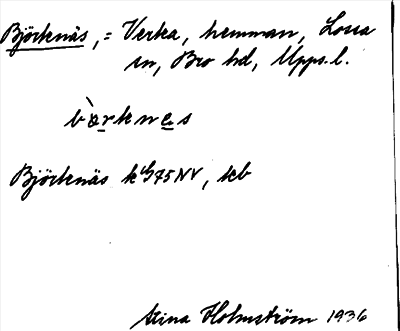 Björknäs, = Verka, hemman, Lossa
sn, Bro hd, Upps. l.
bàrknas
Björknäs k 4/9 75 NV, tcb
Stina Holmström 1936